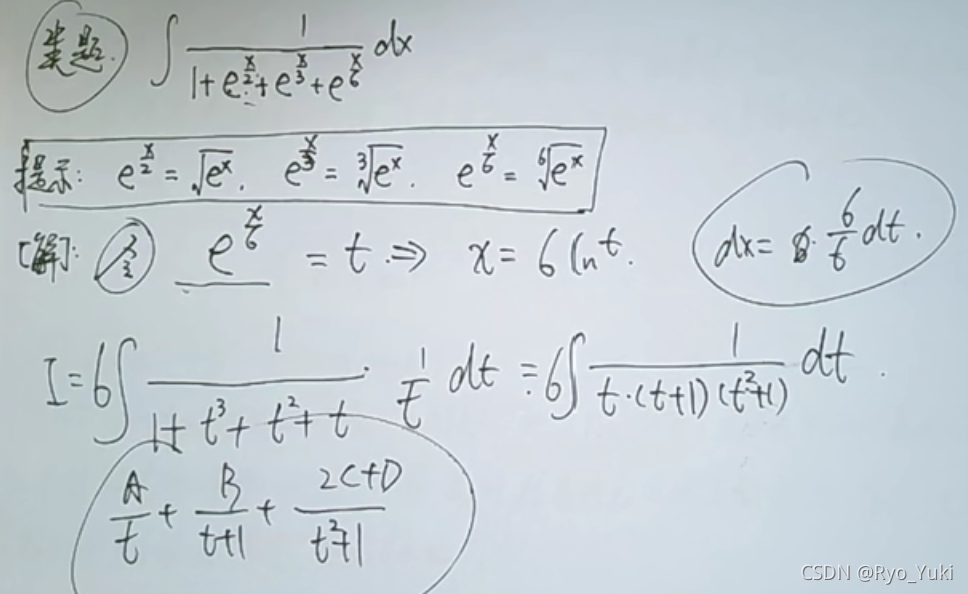 类题. ∫ 1/(1+e^{x/2}+e^{x/3}+e^{x/6}) dx
提示: e^{x/2} = √(e^x). e^{x/3} = ∛(e^x). e^{x/6} = ⁶√(e^x)
[解]: 令 e^{x/6} = t ⇒ x = 6 ln t. dx = 6/t dt.
I = 6∫ 1/(1+t³+t²+t) · 1/t dt = 6∫ 1/(t·(t+1)(t²+1)) dt.
A/t + B/(t+1) + (2C+D)/(t²+1)
CSDN @Ryo_Yuki